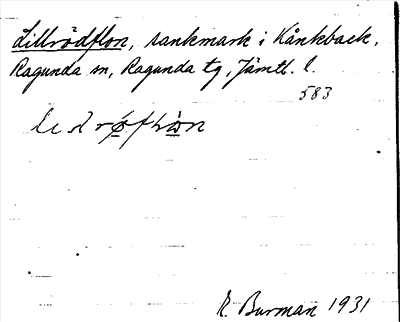 Lillrödflon, rankmark i Kånkback,
Ragunda sn, Ragunda tg, Jämtl. l.
583
R. Burman 1931